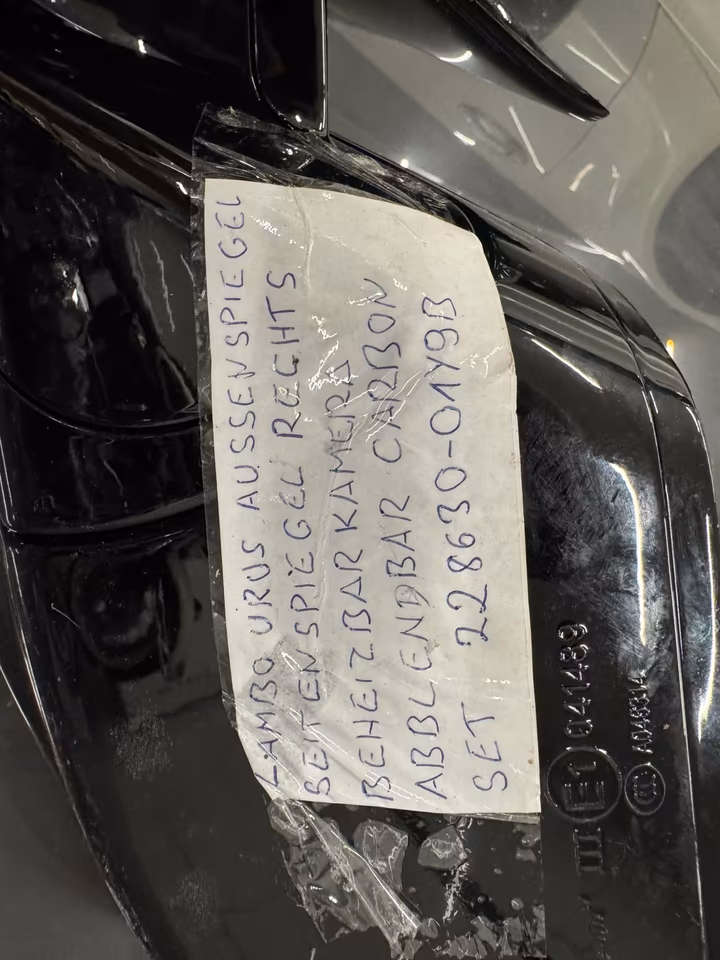 LAMBO URUS AUSSENSPIEGEL
SEITENSPIEGEL RECHTS
BEHEIZBAR KAMERA
ABBLENDBAR CARBON
SET 228630-01Y9B
III E1 041439
A046314